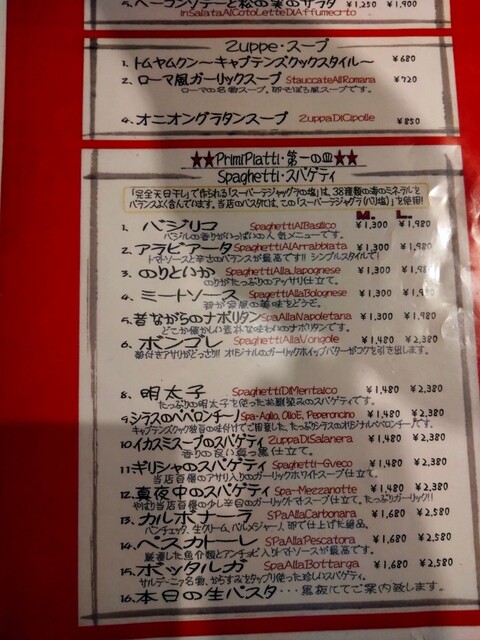 5. ベーコンソテーと松の実のサラダ ¥1,250 ¥1,900
InSalataAlCotoLetteDiAffumecrto
Zuppe・スープ
1. トムヤムクン〜キャプテンズクックスタイル〜 ¥680
2. ローマ風ガーリックスープ StauccateAllRomana ¥720
ローマの名物スープ。卵そぼろ風スープです。
4. オニオングラタンスープ ZuppaDiCipolle ¥850
★★PrimiPiatti・第一の皿★★
Spaghetti・スパゲティ
「完全天日干し」で作られる「スーパーデジャッグラの塩」は、38種類の海のミネラルを
バランスよく含んでいます。当店のパスタには、この「スーパーデジャグラ(バリ塩)」を使用!!
M. L.
1. バジリコ SpaghettiAlBasilico ¥1,300 ¥1,980
バジルの香りがいっぱいの人気メニューです。
2. アラビアータ SpaghettiAlArrabbiata ¥1,300 ¥1,980
トマトソースと辛さのバランスが最高です!! シンプルスタイルで!
3. のりといか SpaghettiAllaJapognese ¥1,300 ¥1,980
のりがたっぷりのアッサリ仕立て。
4. ミートソース SpagettiAllaBolognese ¥1,300 ¥1,980
昔が会風の美味をどうぞ。
5. 昔ながらのナポリタン SpaAllaNapoletana ¥1,300 ¥1,980
どこか懐かしい素朴な味わいのナポリタンです。
6. ボンゴレ SpaghettiAllaVongole ¥1,480 ¥2,380
殻付きアサリがどっさり!! オリジナルのガーリックホイップバターがコクを引き出します。
8. 明太子 SpaghettiDiMentaico ¥1,480 ¥2,380
たっぷりの明太子を使ったお馴染みのスパゲティです。
9. シラスのペペロンチーノ Spa-Aglio,OlioE,Peperoncino ¥1,480 ¥2,380
キャプテンズクック独自の味付けでご用意した、たっぷりシラスのオリジナルペペロンチーノです。
10. イカスミスープのスパゲティ ZuppaDiSalanera ¥1,480 ¥2,380
香りの良い真っ黒仕立て。
11. ギリシャのスパゲティ Spaghetti-Greco ¥1,480 ¥2,380
当店自慢のアサリ入りガーリックホワイトスープ仕立て。
12. 真夜中のスパゲティ Spa-Mezzanotte ¥1,480 ¥2,380
やはり当店自慢の少し辛目のガーリックトマトスープ仕立て。たっぷりガーリック!!
13. カルボナーラ SPaAllaCarbonara ¥1,680 ¥2,580
パンチェッタ、生クリーム、パルメジャーノ、卵で仕上げた絶品。
14. ペスカトーレ SPaAllaPescatora ¥1,680 ¥2,580
厳選した魚介類とアンチョビ入りトマトソースが最高です。
15. ボッタルガ SpaAllaBottarga ¥1,680 ¥2,580
サルデーニャ名物、からすみをタップリ使った珍しいスパゲティ。
16. 本日の生パスタ・・・黒板にてご案内致します。